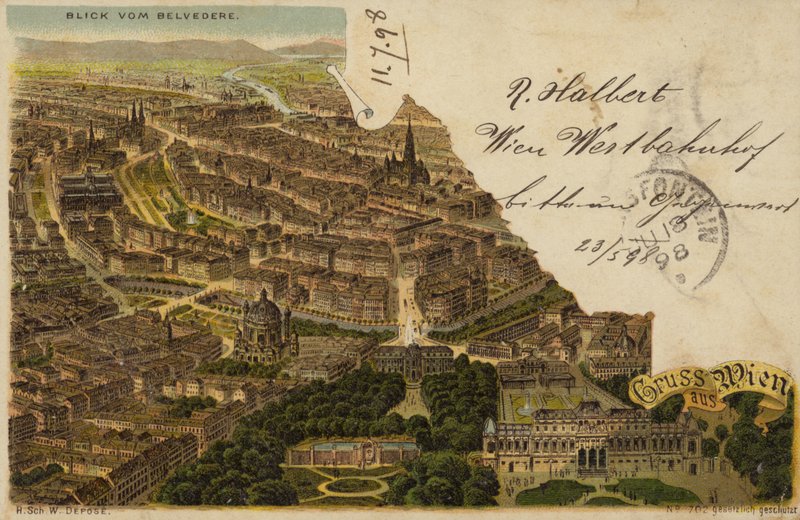 BLICK VOM BELVEDERE.
11.7.98
R. Halbert
Wien Westbahnhof
bitte um
23/5 98
Gruss aus Wien
H. Sch. W. DEPOSÉ.
No 702 gesetzlich geschützt